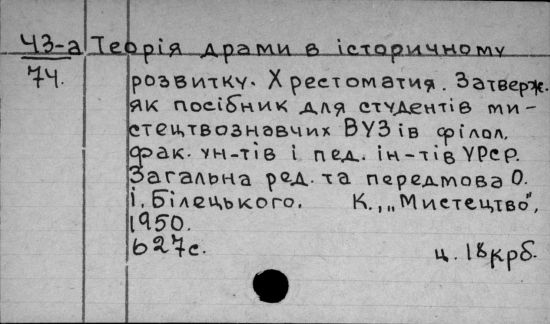 ЧЗ-а Теорія драми в історичному
74. розвитку. Хрестоматия. Затверж.
як посібник для студентів ми-
стецтвознавчих ВУЗів філол.
фак. ун-тів і пед. ін-тів УРСР.
Загальна ред. та передмова О.
І. Білецького. К., „Мистецтво",
1950.
627с. ц. 18крб.